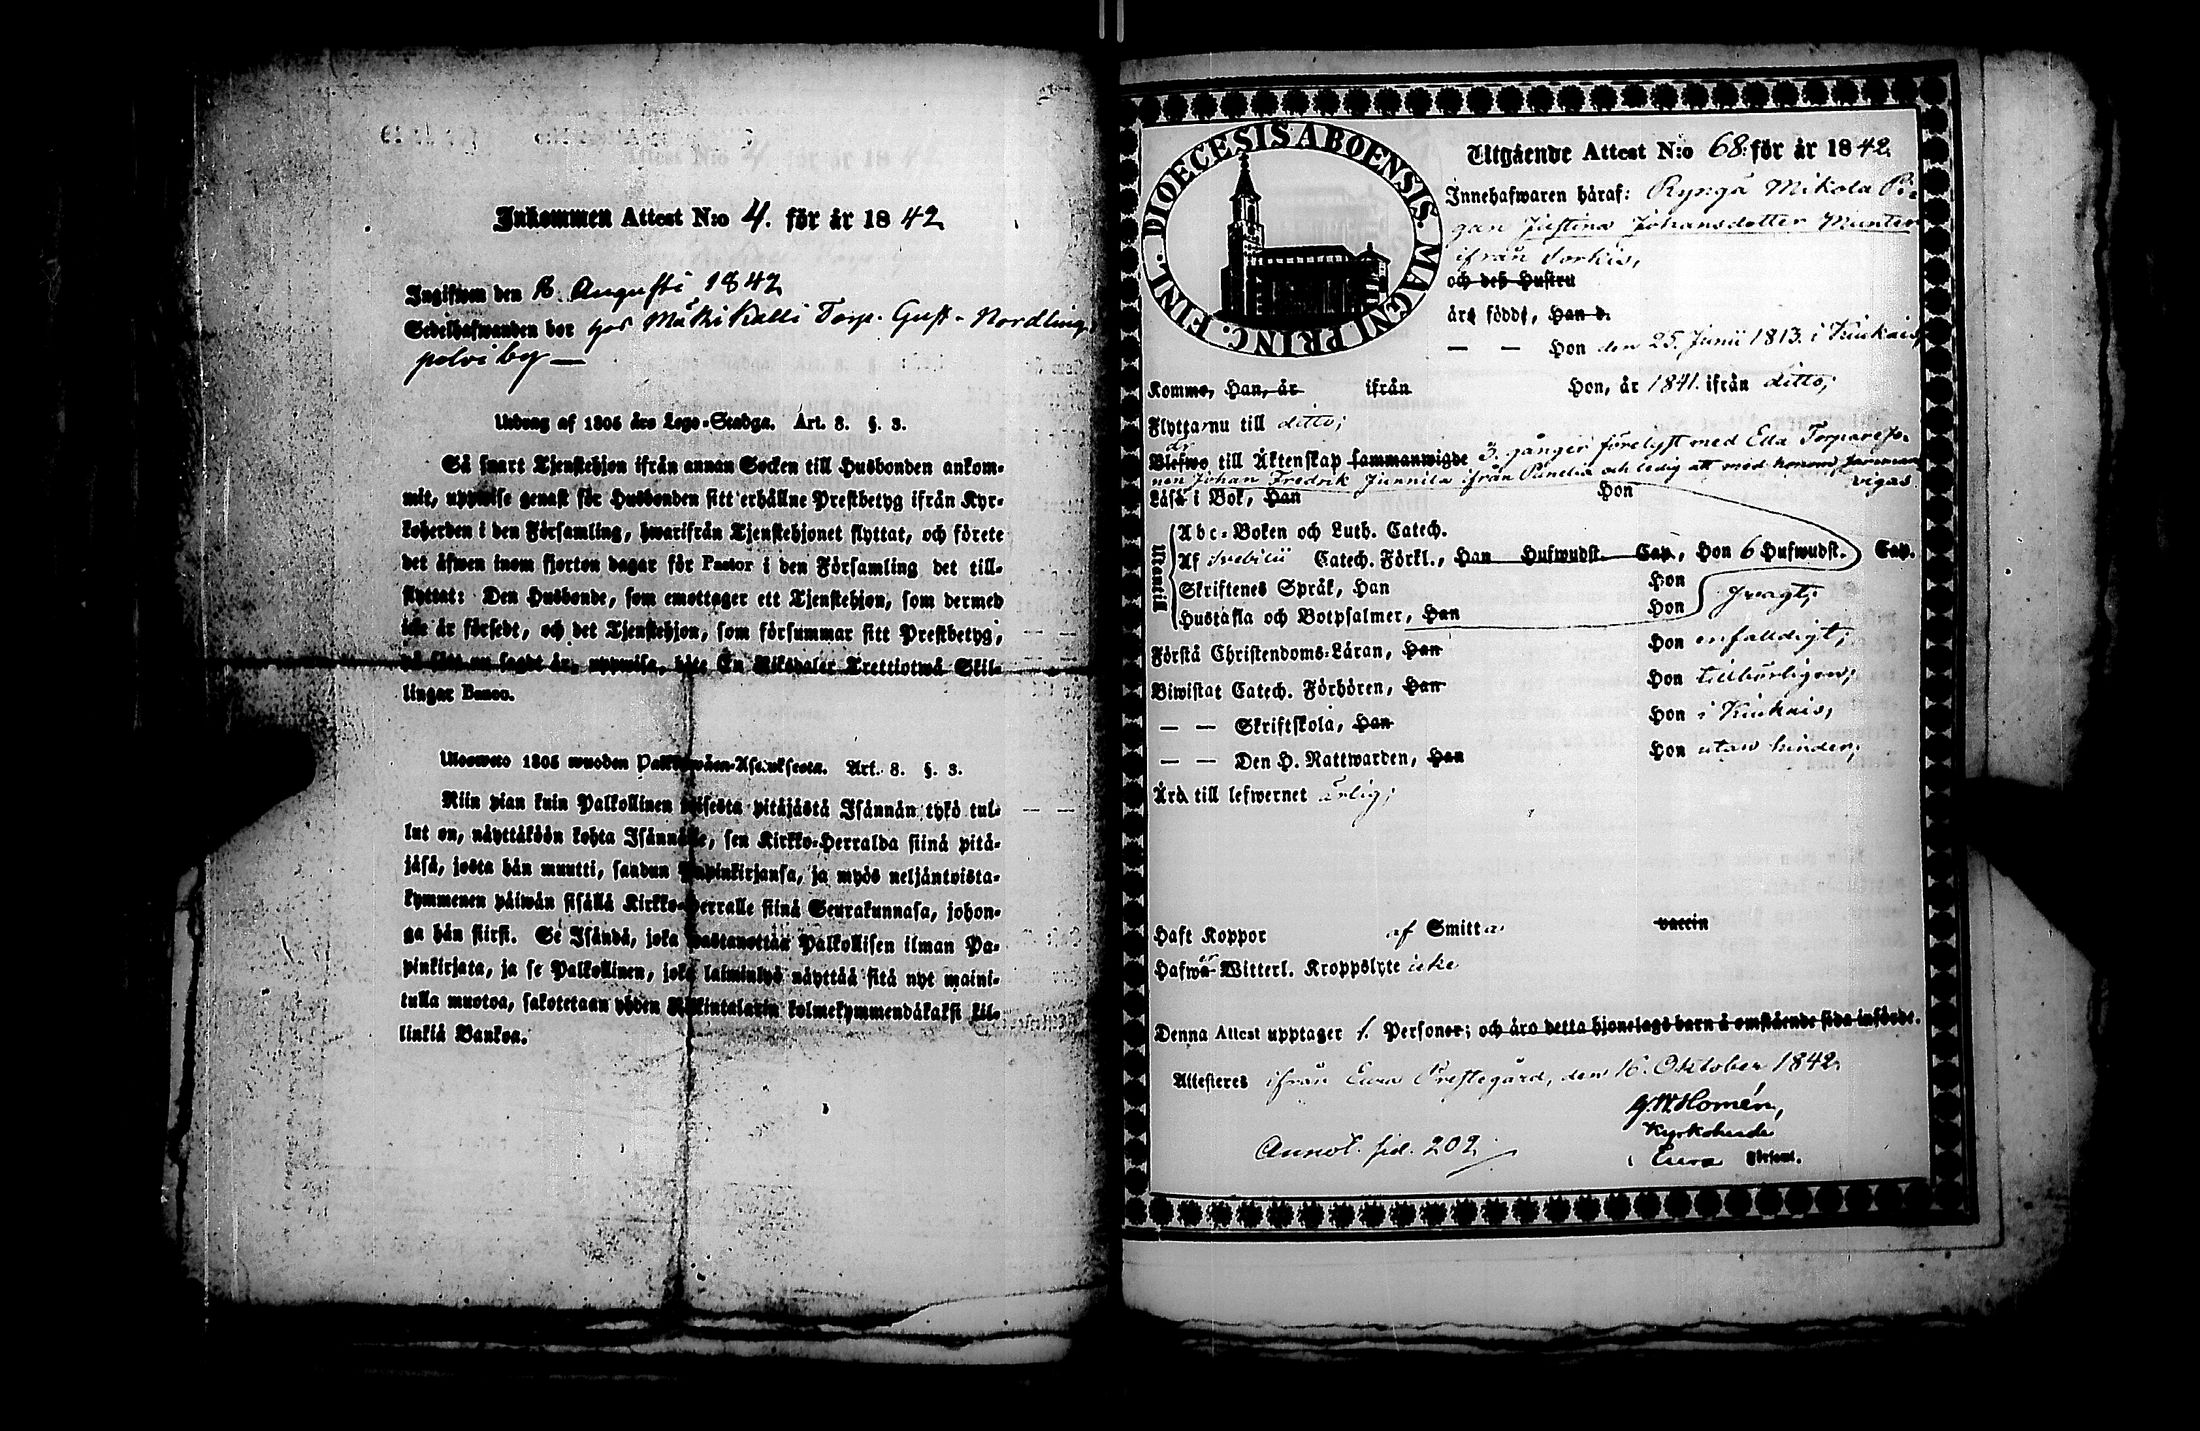 Inkommen Attest N:o 4. för år 1842
Ingifwen den 16. Augusti 1842
Sedelhafwanden bor hos Mäki Kalli Torp. Gust. Nordling
polvi by —
Utdrag af 1805 års Lego-Stadga. Art. 8. §. 3.
Så snart Tjenstehjon ifrån annan Socken till Husbonden ankom-
mit, uppwise genast för Husbonden sitt erhållne Prestbetyg ifrån Kyr-
koherden i den Församling, hwarifrån Tjenstehjonet flyttat, och förete
det äfwen inom fjorton dagar för Pastor i den Församling det till-
flyttat: Den Husbonde, som emottager ett Tjenstehjon, som dermed
icke är försedt, och det Tjenstehjon, som försummar sitt Prestbetyg,
på sätt nu sagdt är, uppwisa, böte En Riksdaler Trettiotwå Skil-
lingar Banco.
Ulosweto 1805 wuoden Palkkawäen-Asetuksesta. Art. 8. §. 3.
Niin pian kuin Palkollinen toisesta pitäjästä Isännän tykö tul-
lut on, näyttäköön kohta Isännälle, sen Kirkko-Herralda siinä pitä-
jäsä, josta hän muutti, saadun Papinkirjansa, ja myös neljäntoista-
kymmenen päiwän sisällä Kirkko-Herralle siinä Seurakunnasa, johon-
ga hän siirsi. Se Isändä, joka wastanottaa Palkollisen ilman Pa-
pinkirjata, ja se Palkollinen, joka laiminlyö näyttää sitä nyt maini-
tulla muotoa, sakotetaan yhden Rikintalarin kolmekymmendäkaksi kil-
linkiä Bankoa.
DIOECESIS ABOENSIS. MAGNI PRINC. FINL.
Utgående Attest N:o 68. för år 1842.
Innehafwaren häraf: Ryngä Mikola Pi-
gan Justina Johansdotter Munter
ifrån Sorkis,
och dess Hustru
äro född, Han d.
— — Hon den 25. Junii 1813. i Kiukais,
Komne, Han, år ifrån Hon, år 1841. ifrån ditto;
Flyttar nu till ditto;
är
Blefwo till Äktenskap sammanwigde 3. gånger förelyst med Ella Torpareso-
nen Johan Fredrik Junnila ifrån Panelia och ledig att med honom samman
vigas.
Läsa i Bok, Han Hon
Utantill
Abc-Boken och Luth. Catech.
Af Svebilii Catech. Förkl., Han Hufwudst. Cap., Hon 6 Hufwudst. Cap.
Skriftenes Språk, Han Hon
Hustafla och Botpsalmer, Han Hon svagt;
Förstå Christendoms-Läran, Han Hon enfalldigt;
Biwistat Catech. Förhören, Han Hon tillbörligen;
— — Skriftskola, Han Hon i Kiukais,
— — Den H. Nattwarden, Han Hon utan hinder;
Äro till lefwernet ärlig;
Haft Koppor af Smitta. vaccin
Hafwa er Witterl. Kroppslyte icke
Denna Attest upptager 1. Personer; och äro detta hjonelags barn å omstående sida införde.
Attesteras ifrån Eura Prestegård, den 16. Oktober 1842.
G. W. Homén,
Kyrkoherde
i Eura Församl.
Annot. sid. 202.